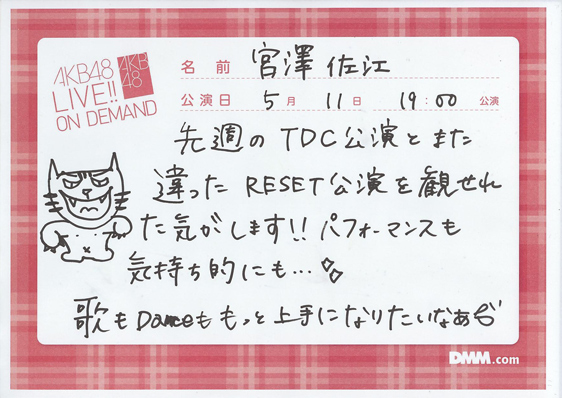 AKB48
LIVE!!
ON DEMAND
AKB
48
名前 宮澤 佐江
公演日 5月 11日 19:00 公演
先週のTDC公演とまた
違ったRESET公演を観せれ
た気がします!! パフォーマンスも
気持ち的にも…
歌もDanceももっと上手になりたいなぁ
DMM.com